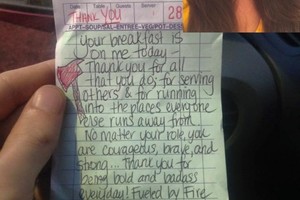 Date Table Guests Server
THANK YOU 28
APPT-SOUP/SAL-ENTREE-VEG/POT-DES
Your breakfast is
on me today -
Thank you for all
that you do; for serving
others & for running
into the places everyone
else runs away from.
No matter your role, you
are courageous, brave, and
strong... Thank you for
being bold and badass
everyday! Fueled by Fire